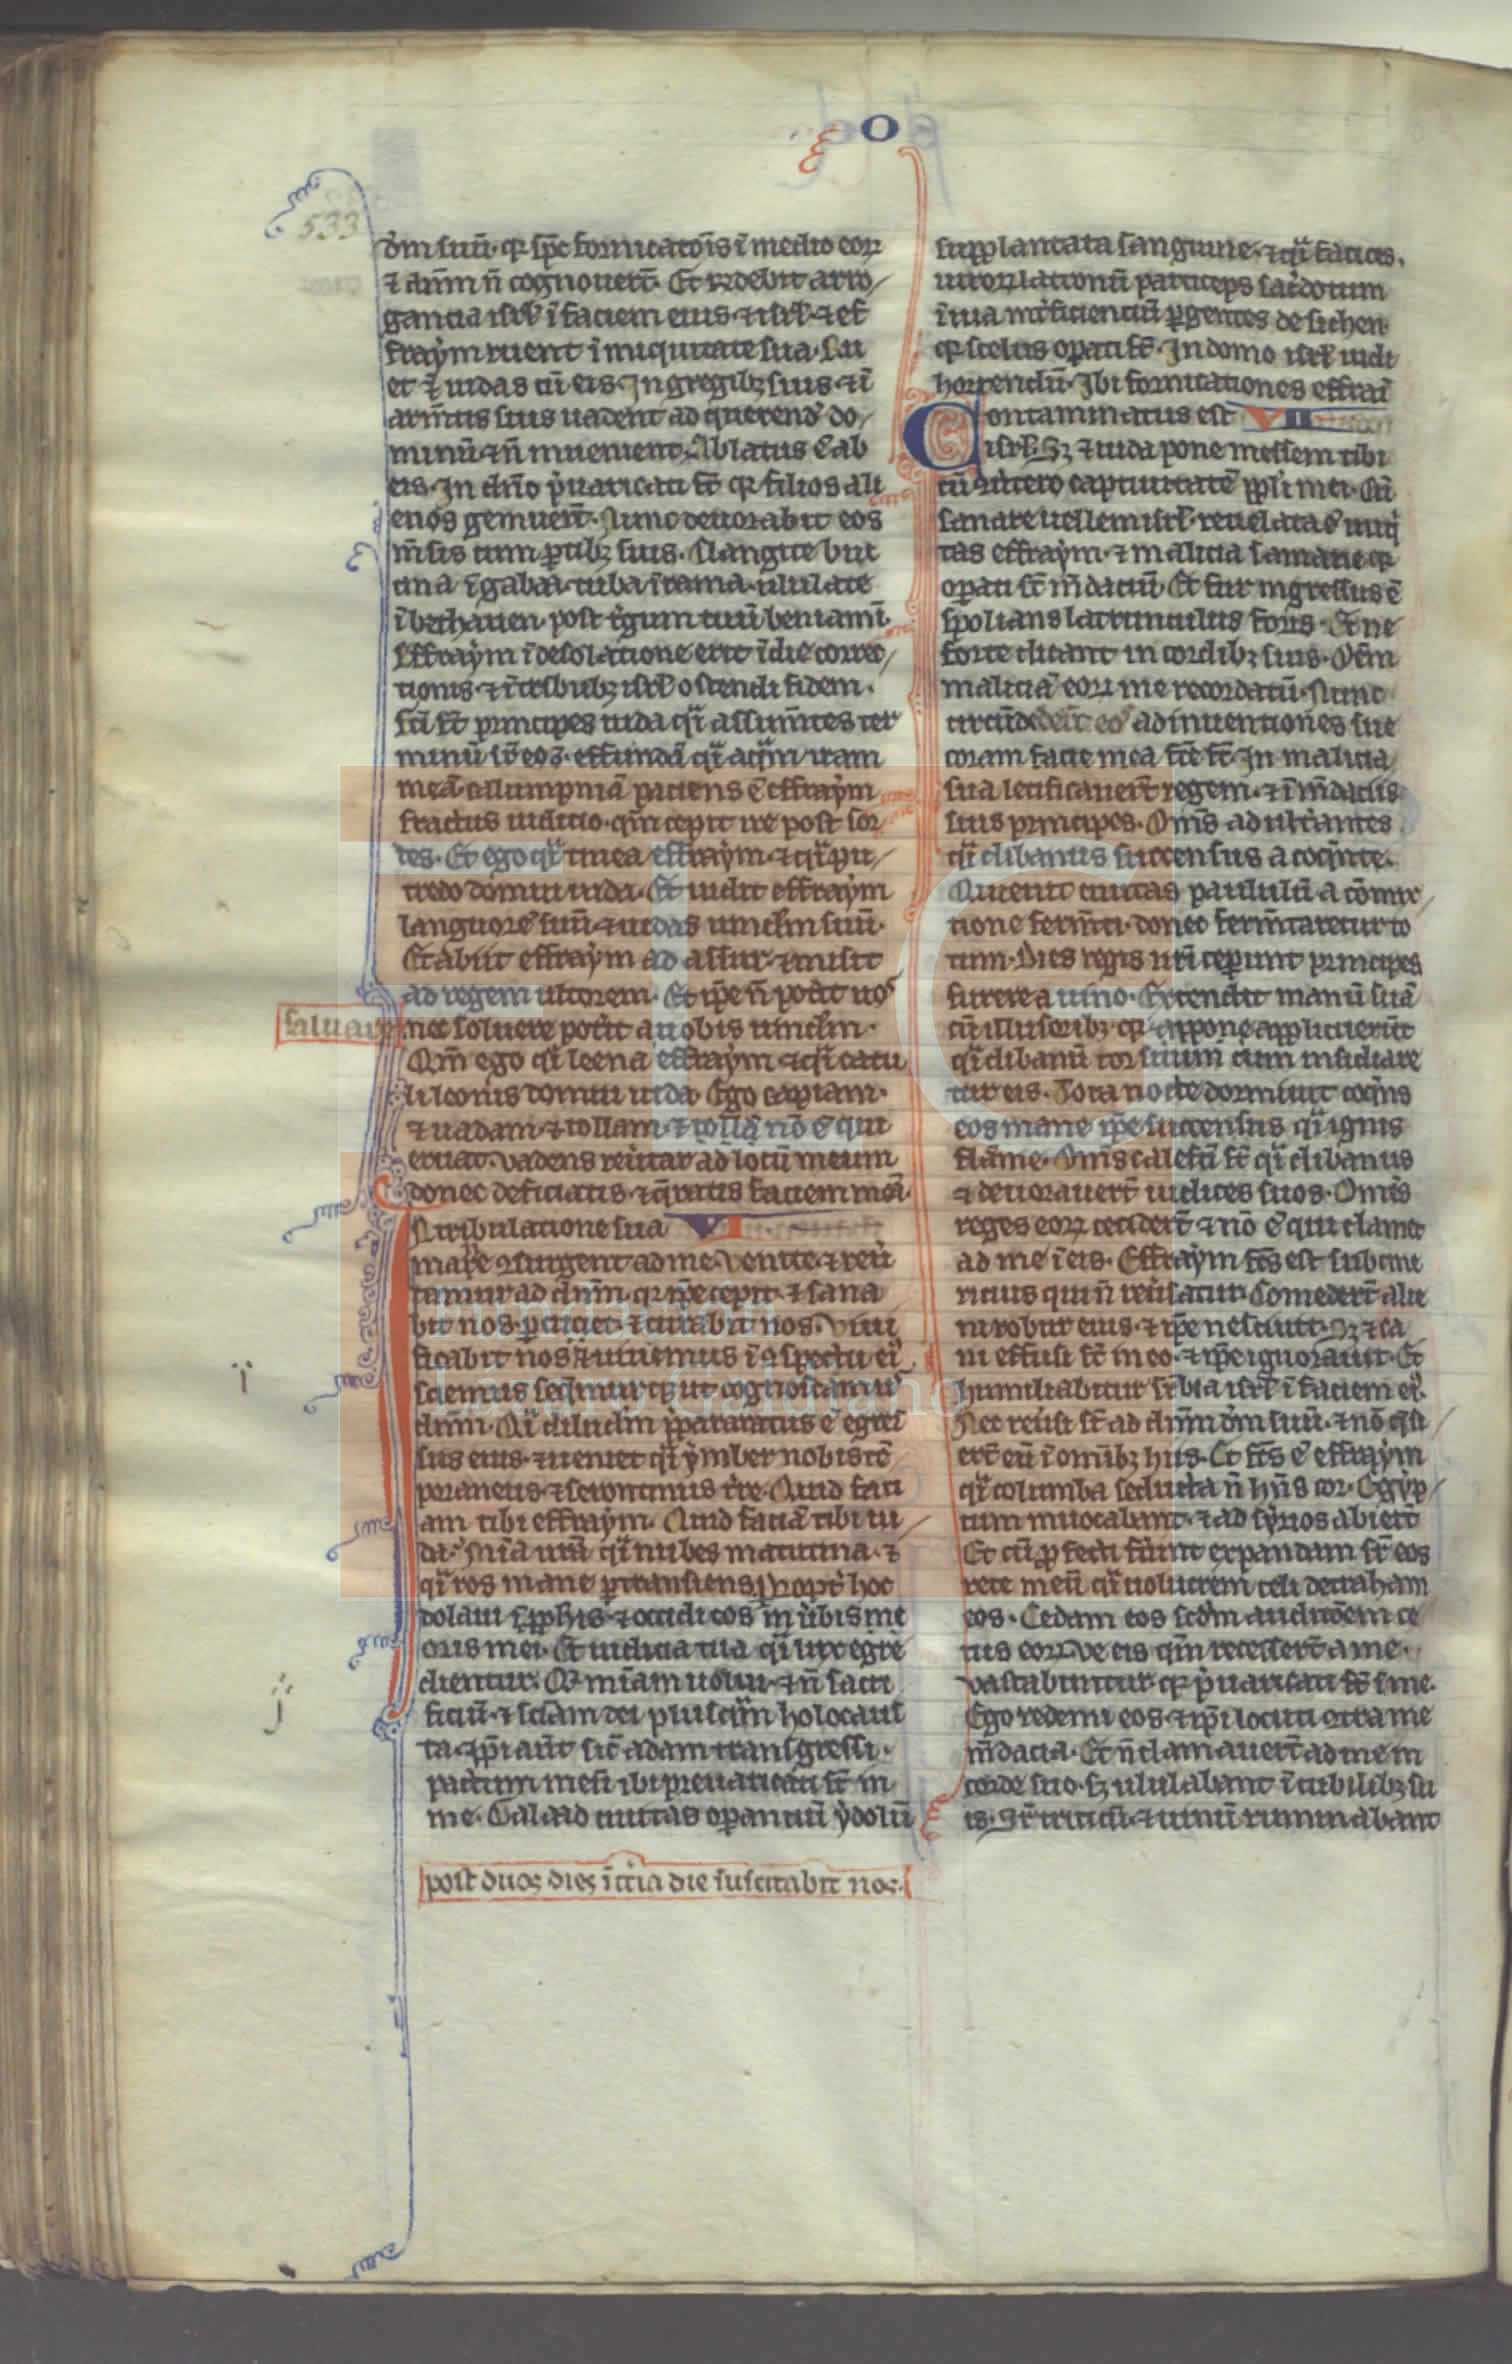 O
533
dm̄ suū. qr sp̄c fornicatōis ī medio eoꝝ
⁊ dn̄m n̄ cognoueꝛ̄t. Et rn̄debit arro/
gancia isrl̓ ī faciem eius. ⁊ isrl̓. ⁊ ef
fraẏm ruent ī iniquitate sua. Ru
et ⁊ iudas cū eis. In gregibꝫ suis ⁊ ī
arm̄tis suis uadent ad querend̓ do/
minū ⁊ n̄ inuenient. Ablatus ē ab
eis. In dn̄o p̓uaricati st̄ qr filios ali
enos genueꝛ̄t. Nunc deuorabit eos
m̄sis cum ꝑtibꝫ suis. Clangite buc
cina ī gabaa. tuba ī rama. ululate
ī bethauen. post t̓gum tuū beniamī.
Effraẏm ī desolatione erit ī die correc/
tionis. ⁊ ī t̓bubꝫ isrl̓ ostendi fidem.
Fc̄i st̄ principes iuda qͣi assum̄tes ter
minū. sr̄ eos effundā qͣi aqͣm iram
meā. callumpniā paciens ē effraẏm
fractus iudicio. qm̄ cepit ire post sor
des. Et ego qͣi tinea effraẏm. ⁊ qͣi pu/
tredo domui iuda. Et uidit effraẏm
languorē suū. ⁊ iudas uinclm̄ suū.
Et abiit effraẏm ad assur. ⁊ misit
ad regem ultorem. Et ip̄e n̄ pot̓it uos
saluare
nec soluere pot̓it a uobis uinclm̄.
Qm̄ ego qͣi leena effraẏm ⁊ qͣi catu
li leonis domui iuda. Ego capiam.
⁊ uadam. ⁊ tollam. ⁊ tollā nō ē qui
eruat. Vadens reu̓tar ad locū meum
donec deficiatis. ⁊ q̄ratis faciem meā.
N tribulatione sua VI
mane ꝯsurgent ad me. Venite ⁊ reu̓
tamur ad dn̄m. qr ip̄e cepit. ⁊ sana
bit nos. ꝑcuciet. ⁊ curabit nos. Viui
ficabit nos ⁊ uiuemus ī ꝯspectu eiꝰ
sciemus seqͣmurqꝫ ut cognoscamus
dn̄m. Qͣi diluclm̄ p̄paratus ē egres
sus eius. ⁊ ueniet qͣi ẏmber nobis tē
poraneus. ⁊ serotinus t̓re. Quid faci
am tibi effraẏm. Quid faciā tibi iu
da. Mīa ur̄a qͣi nubes matutina. ⁊
qͣi ros mane ꝑtransiens. Propt̓ hoc
dolaui ī ꝓphis. ⁊ occidi eos in u̓bis me
oris mei. Et iudicia tua qͣi lux egre
dientur. Qr mīam uolui. ⁊ n̄ sacri
ficiū. ⁊ sciām dei plusqͣm holocaus
ta. ⁊ ip̄i aūt sic̄ adam transgressi.
pactum meū ibi preuaricati st̄ in
me. Galaad ciuitas oꝑantiū ẏdolū
post duos dies ī t̓cia die suscitabit nos.
supplantata sanguine. ⁊ qͣi fauces.
uiroꝝ latronū particeps sac̓dotum
ī uia int̓ficienciū ꝑgentes de sichen.
qr scelus oꝑati st̄. In domo isrl̓ uidi
horrendū. Ibi fornicationes effraī
Contaminatus est VII
isrl̓. Sꝫ ⁊ iuda pone messem tibi
cū ꝯu̓tero captiuitatē ppl̓i mei. Cū
sanare uellem isrl̓. reuelata ē iniqͥ
tas effraẏm. ⁊ malicia samarie. qr
oꝑati st̄ m̄daciū. Et fur ingressus ē
spolians latrunculus foris. Et ne
forte dicant in cordibꝫ suis. Om̄em
maliciā eoꝝ me recordatū. Nunc
circūdedeꝛ̄t eos adinuentiones sue
coram facie mea fc̄e st̄. In malicia
sua letificaueꝛ̄t regem. ⁊ ī m̄daciis
suis principes. Om̄s adult̓antes
qͣi clibanus succensus a coqͣnte.
Quieuit ciuitas paululū a cōmix/
tione ferm̄ti. donec ferm̄taretur to
tum. Dies regis nr̄i ceꝑunt principes
furere a uino. Extendit manū suā
cū illusoribꝫ. qr appone applicuer̄ut
qͣi clibanū cor suum cum insidiare
tur eis. Tota nocte dormiuit coqͣns
eos mane ip̄e succensus qͣi ignis
flāme. Om̄s calefc̄i st̄ qͣi clibanus
⁊ deuoraueꝛ̄t iudices suos. Omīs
reges eoꝝ cecideꝛ̄t ⁊ nō ē qui clamet
ad me ī eis. Effraẏm fc̄s est subcine
ricius qui n̄ reu̓satur. Comedeꝛ̄t alie
ni robur eius. ⁊ ip̄e nesciuit. Sꝫ ⁊ ca
ni effusi st̄ in eo. ⁊ ip̄e ignorauit. Et
humiliabitur sr̄bia isrl̓ ī faciem eiꝰ.
Nec reu̓si st̄ ad dn̄m dm̄ suū. ⁊ nō q̄si/
eꝛ̄t eū ī omībꝫ hiis. Et fc̄s ē effraẏm
qͣi columba seducta n̄ hn̄s cor. Egẏp/
tum inuocabant. ⁊ ad sẏrios abieꝛ̄t
Et cū ꝓfecti fūint expandam sr̄ eos
rete meū qͣi uolucrem celi detraham
eos. Cedam eos scd̓m audicōem ce
tus eoꝝ. Ve eis qm̄ recesseꝛ̄t a me.
vastabuntur. qr p̓uaricati st̄ ī me.
Ego redemi eos. ⁊ ip̄i locuti ꝯtra me
m̄dacia. Et n̄ clamaueꝛ̄t ad me in
corde suo. sꝫ ululabant ī cubilibꝫ su
is. Sr̄ triticū. ⁊ uinū ruminabant